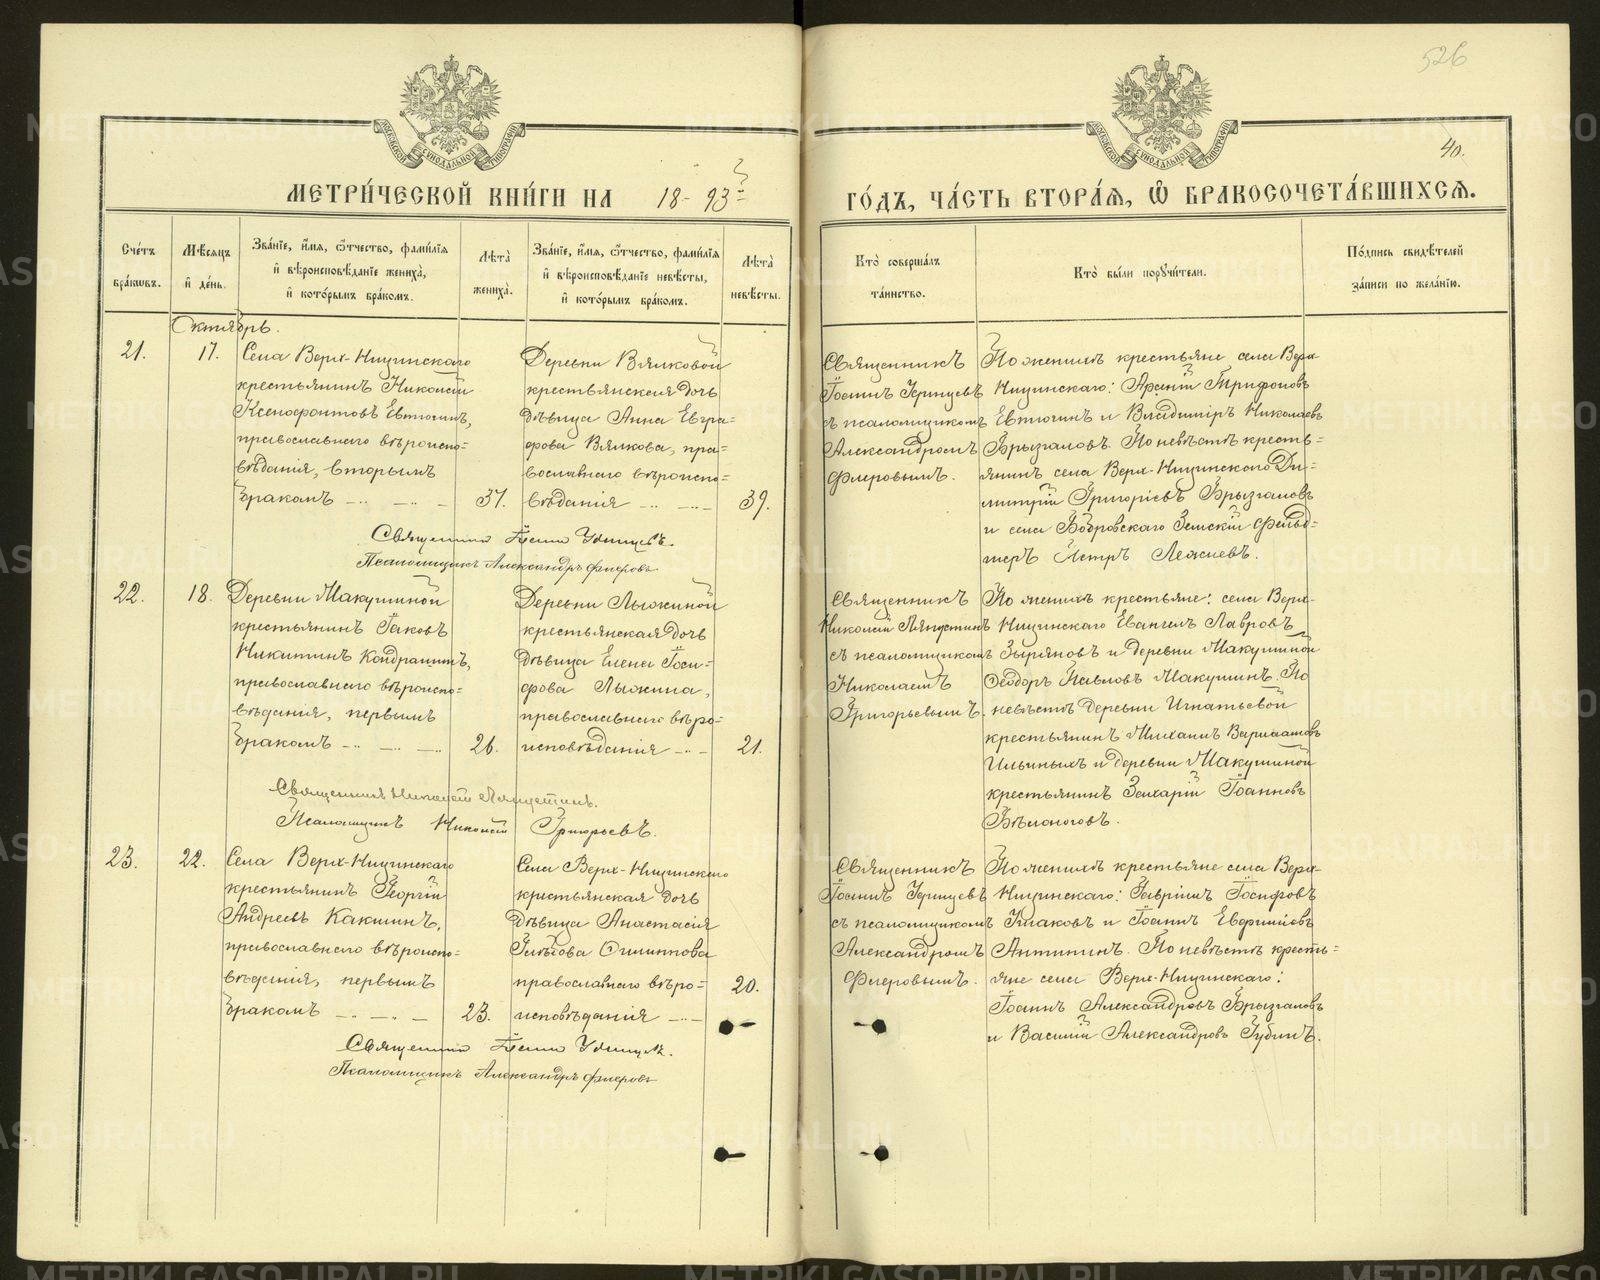 526
40.
МОСКОВСКОЙ СѴНОДАЛЬНОЙ ТИПОГРАФІИ
МОСКОВСКОЙ СѴНОДАЛЬНОЙ ТИПОГРАФІИ
МЕТРИ́ЧЕСКОЙ КНИ́ГИ НА 18-93
ГО́ДЪ, ЧА́СТЬ ВТОРА́Я, Ѽ БРАКОСОЧЕТА́ВШИХСЯ.
Сче́тъ бра́ковъ.
Мѣ́сяцъ и де́нь.
Зва́нїе, и́мя, ѻ́тчество, фами́лїя и вѣроисповѣ́данїе жениха̀, и кото́рымъ бра́комъ.
Лѣ́та жениха̀.
Зва́нїе, и́мя, ѻ́тчество, фами́лїя и вѣроисповѣ́данїе невѣ́сты, и кото́рымъ бра́комъ.
Лѣ́та невѣ́сты.
Кто̀ соверша́лъ та́инство.
Кто̀ бы́ли поручи́тели.
По́дпись свидѣ́телей за́писи по жела́нїю.
Октябрь.
21.
17.
Села Верх-Ницинскаго
крестьянинъ Николай
Ксенофонтовъ Евтюгинъ,
православнаго вѣроиспо-
вѣданія, вторымъ
бракомъ
37.
Деревни Вялковой
крестьянская дочь
дѣвица Анна Евгра-
фова Вялкова, пра-
вославнаго вѣроиспо-
вѣданія
39.
Священникъ
Іоаннъ Удинцевъ
съ псаломщикомъ
Александромъ
Флеровымъ.
По женихѣ крестьяне села Верх-
Ницинскаго: Арсеній Трифоновъ
Евтюгинъ и Владиміръ Николаевъ
Брызгаловъ. По невѣстѣ кресть-
янинъ села Верх-Ницинскаго Ди-
митрій Григоріевъ Брызгаловъ
и села Бобровскаго Земскій фельд-
шеръ Петръ
Священникъ Іоаннъ Удинцевъ.
Псаломщикъ Александръ Флеровъ
22.
18.
Деревни Макушиной
крестьянинъ Іаковъ
Никитинъ Кондрашинъ,
православнаго вѣроиспо-
вѣданія, первымъ
бракомъ
26.
Деревни Лыжиной
крестьянская дочь
дѣвица Елена Іоси-
фова Лыжина,
православнаго вѣро-
исповѣданія
21.
Священникъ
Николай Ляпустинъ
съ псаломщикомъ
Николаемъ
Григорьевымъ.
По женихѣ крестьяне: села Верх-
Ницинскаго Евангелъ Лавровъ
Зыряновъ и деревни Макушиной
Ѳеодоръ Павловъ Макушинъ. По
невѣстѣ деревни Игнатьевой
крестьянинъ Михаилъ Варлаамовъ
Ильиныхъ и деревни Макушиной
крестьянинъ Захарій Іоанновъ
Бѣлоноговъ.
Священникъ Николай Ляпустинъ.
Псаломщикъ Николай Григорьевъ.
23.
22.
Села Верх-Ницинскаго
крестьянинъ Георгій
Андреевъ Какшинъ,
православнаго вѣроиспо-
вѣданія, первымъ
бракомъ
23.
Села Верх-Ницинскаго
крестьянская дочь
дѣвица Анастасія
Глѣбова Филиппова
православнаго вѣро-
исповѣданія
20.
Священникъ
Іоаннъ Удинцевъ
съ псаломщикомъ
Александромъ
Флеровымъ.
По женихѣ крестьяне села Верх-
Ницинскаго: Гавріилъ Іосифовъ
Ушаковъ и Іоаннъ Евфиміевъ
Антипинъ. По невѣстѣ кресть-
яне села Верх-Ницинскаго:
Іоаннъ Александровъ Брызгаловъ
и Василій Александровъ Губинъ.
Священникъ Іоаннъ Удинцевъ.
Псаломщикъ Александръ Флеровъ
METRIKI.GASO-URAL.RU